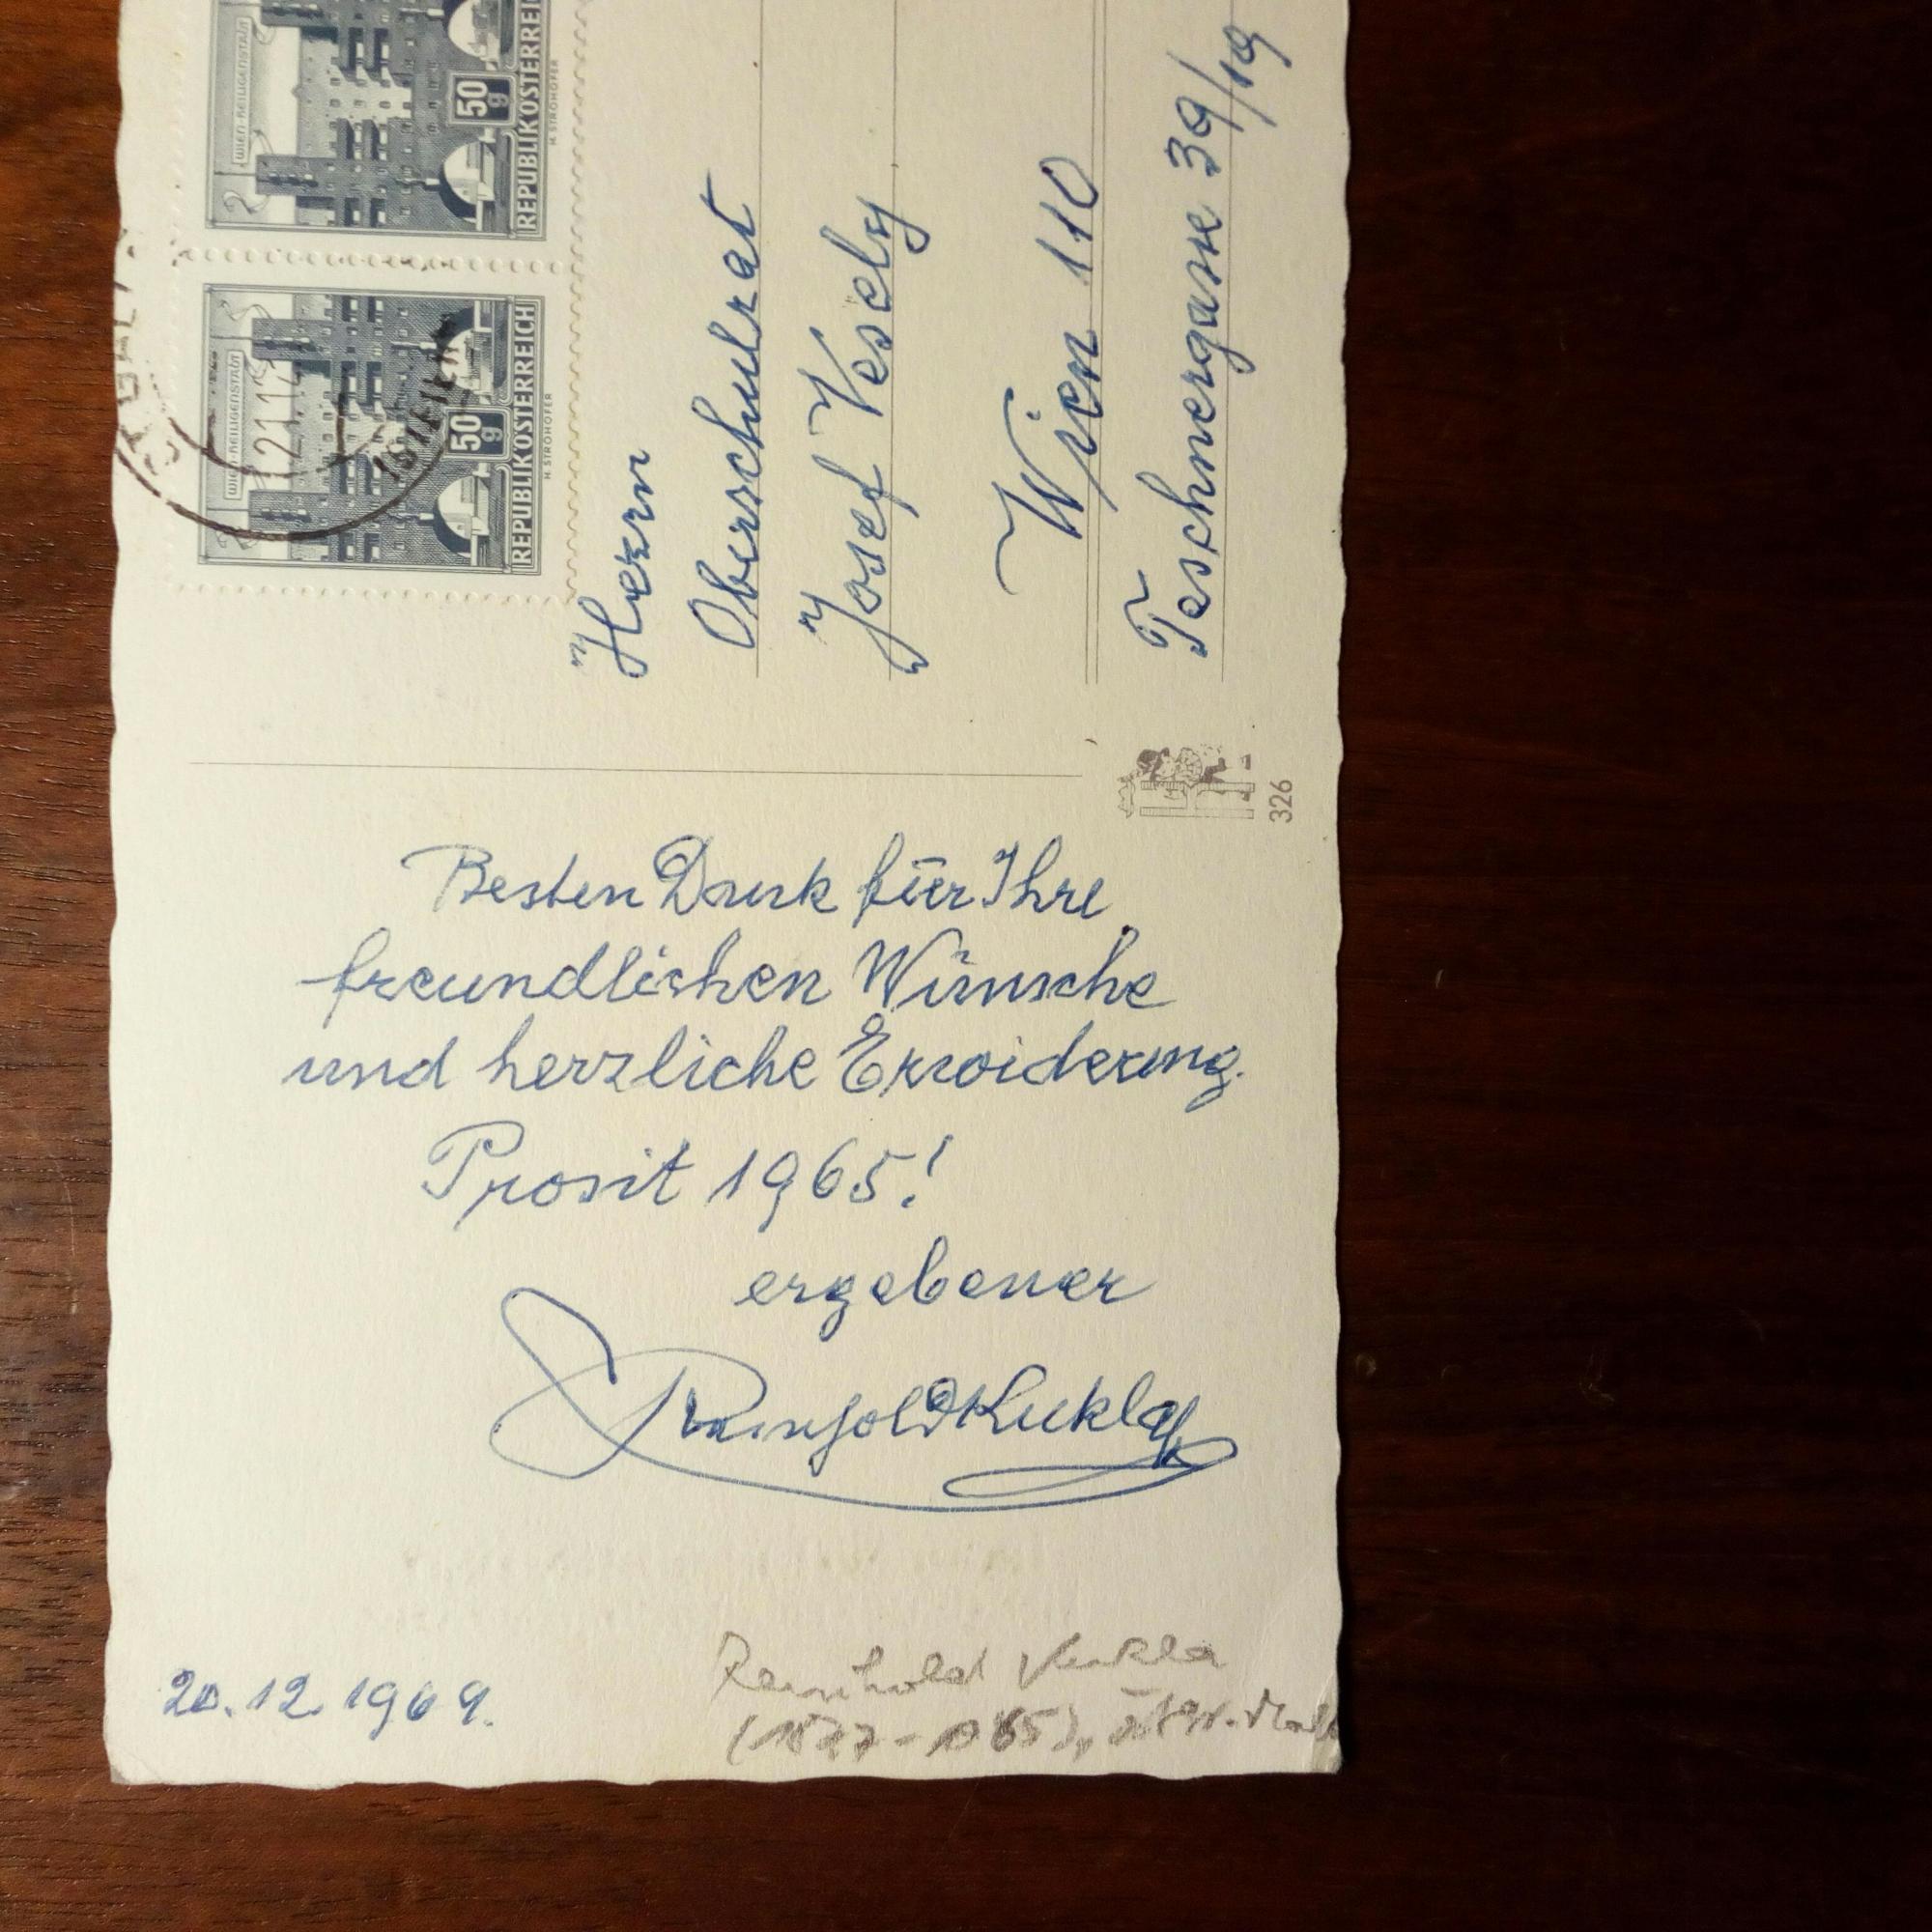 Besten Dank für Ihre
freundlichen Wünsche
und herzliche Erwiderung.
Prosit 1965!
ergebener
Reinhold Kukla
20.12.1964.
Reinhold Kukla
(1877-1965), österr.
WIEN-HEILIGENSTADT
50 g
REPUBLIK ÖSTERREICH
H. STROHOFER
WIEN-HEILIGENSTADT
50 g
REPUBLIK ÖSTERREICH
H. STROHOFER
21.12
Herrn
Oberschulrat
Josef Vesely
Wien 110
Teschnergasse 39/19
326